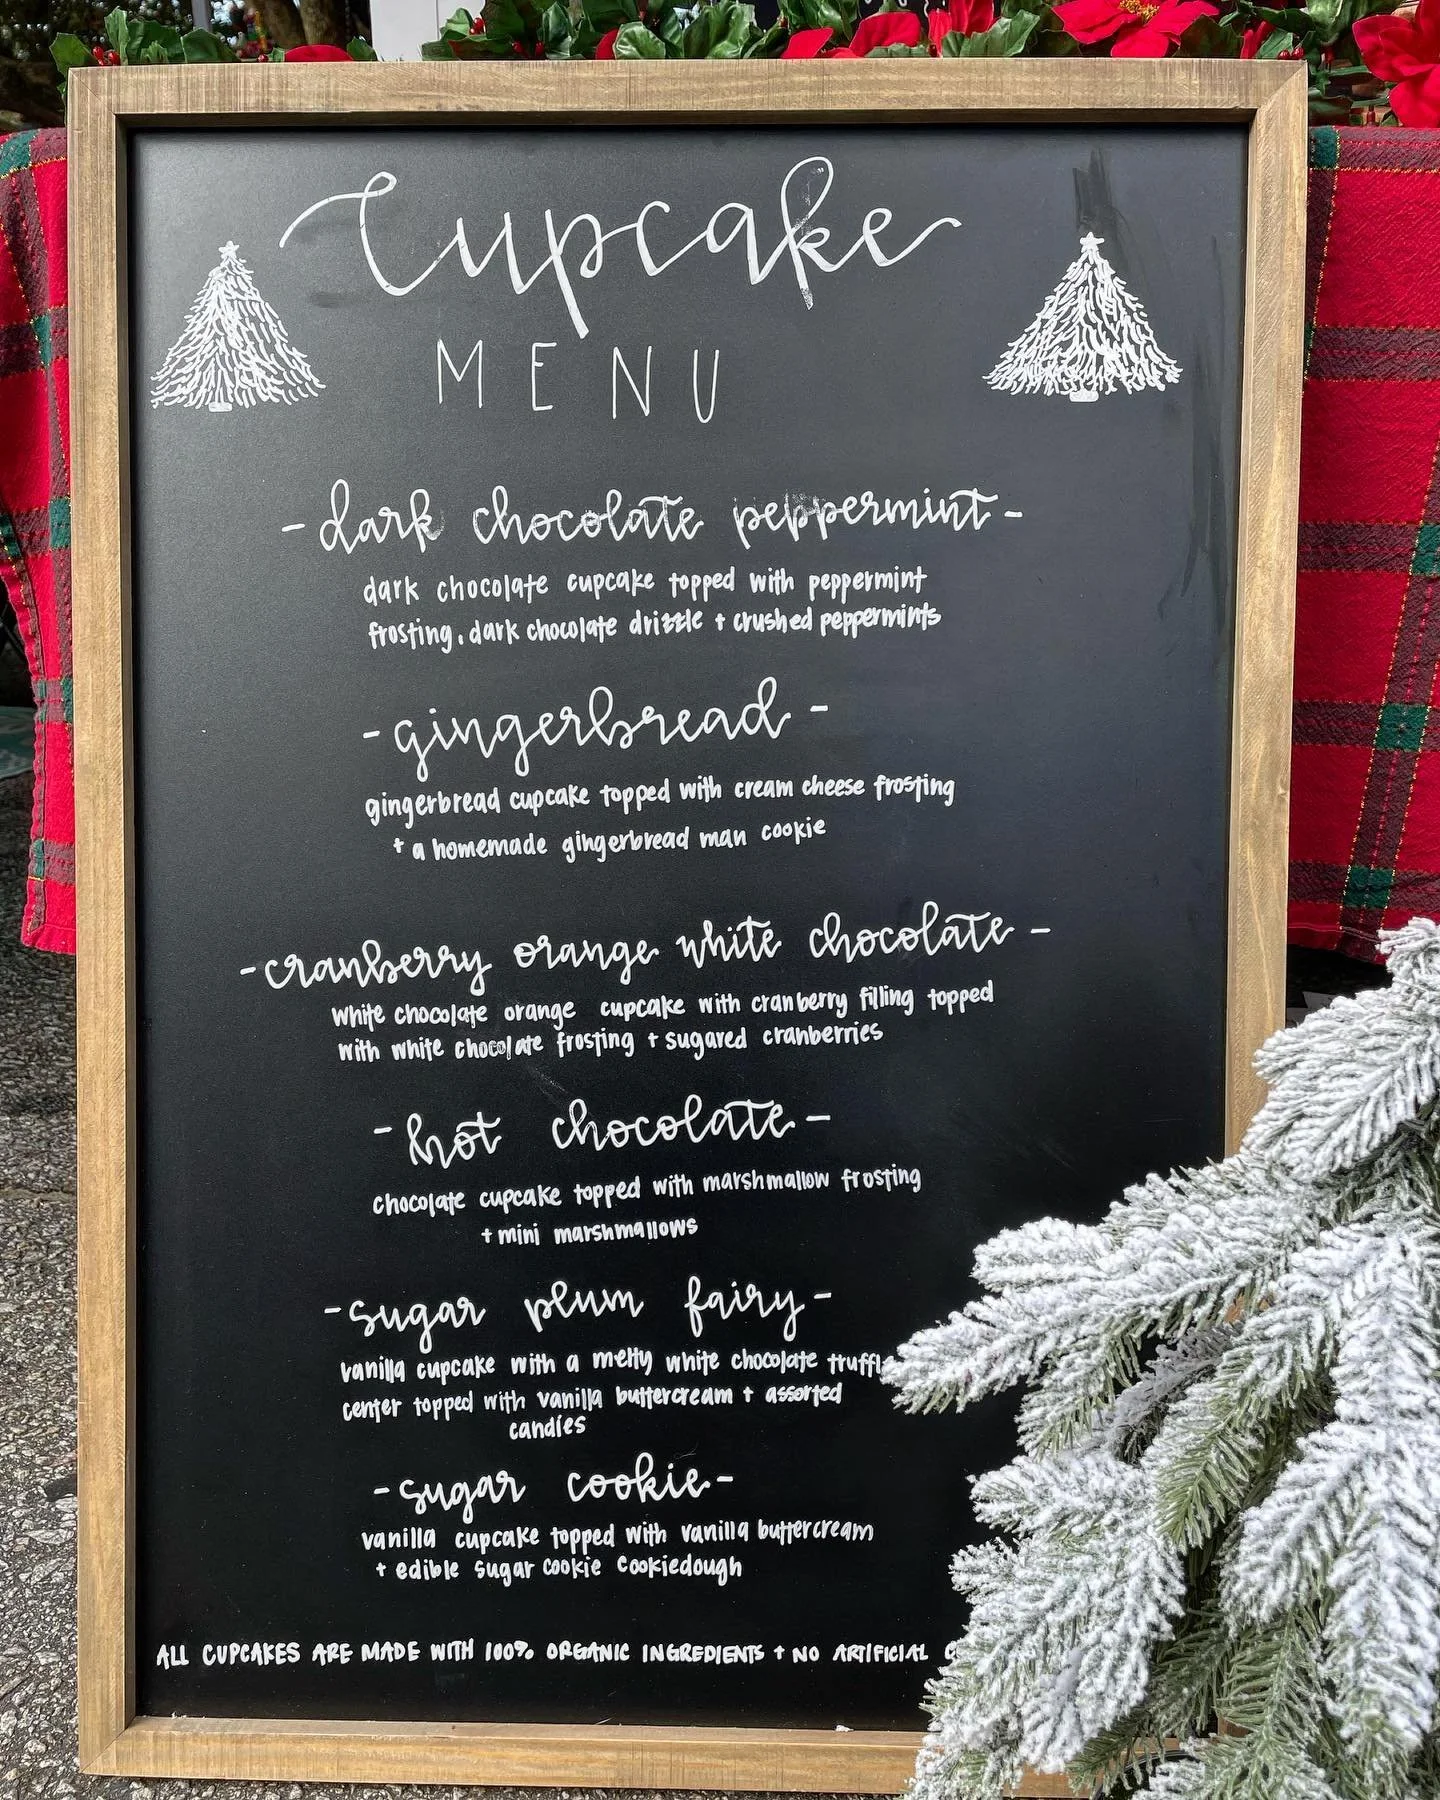 Cupcake
MENU
- dark chocolate peppermint -
dark chocolate cupcake topped with peppermint
frosting, dark chocolate drizzle + crushed peppermints
- gingerbread -
gingerbread cupcake topped with cream cheese frosting
+ a homemade gingerbread man cookie
- cranberry orange white chocolate -
white chocolate orange cupcake with cranberry filling topped
with white chocolate frosting + sugared cranberries
- hot chocolate -
chocolate cupcake topped with marshmallow frosting
+ mini marshmallows
- sugar plum fairy -
vanilla cupcake with a melty white chocolate truffle
center topped with vanilla buttercream + assorted
candies
- sugar cookie -
vanilla cupcake topped with vanilla buttercream
+ edible sugar cookie cookiedough
ALL CUPCAKES ARE MADE WITH 100% ORGANIC INGREDIENTS + NO ARTIFICIAL